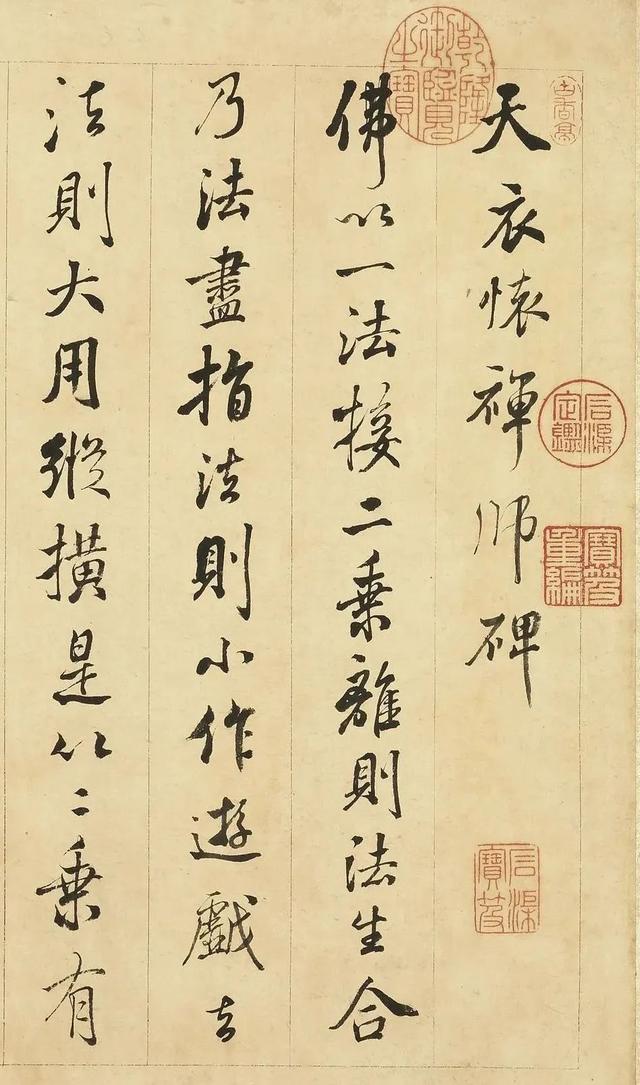 天衣懷禪師碑
佛以一法接二乘離則法生合
乃法盡指法則小作遊戲去
法則大用縱橫是以二乘有
乾隆御覽之寶
石渠定鑑
寶笈重編
石渠寶笈